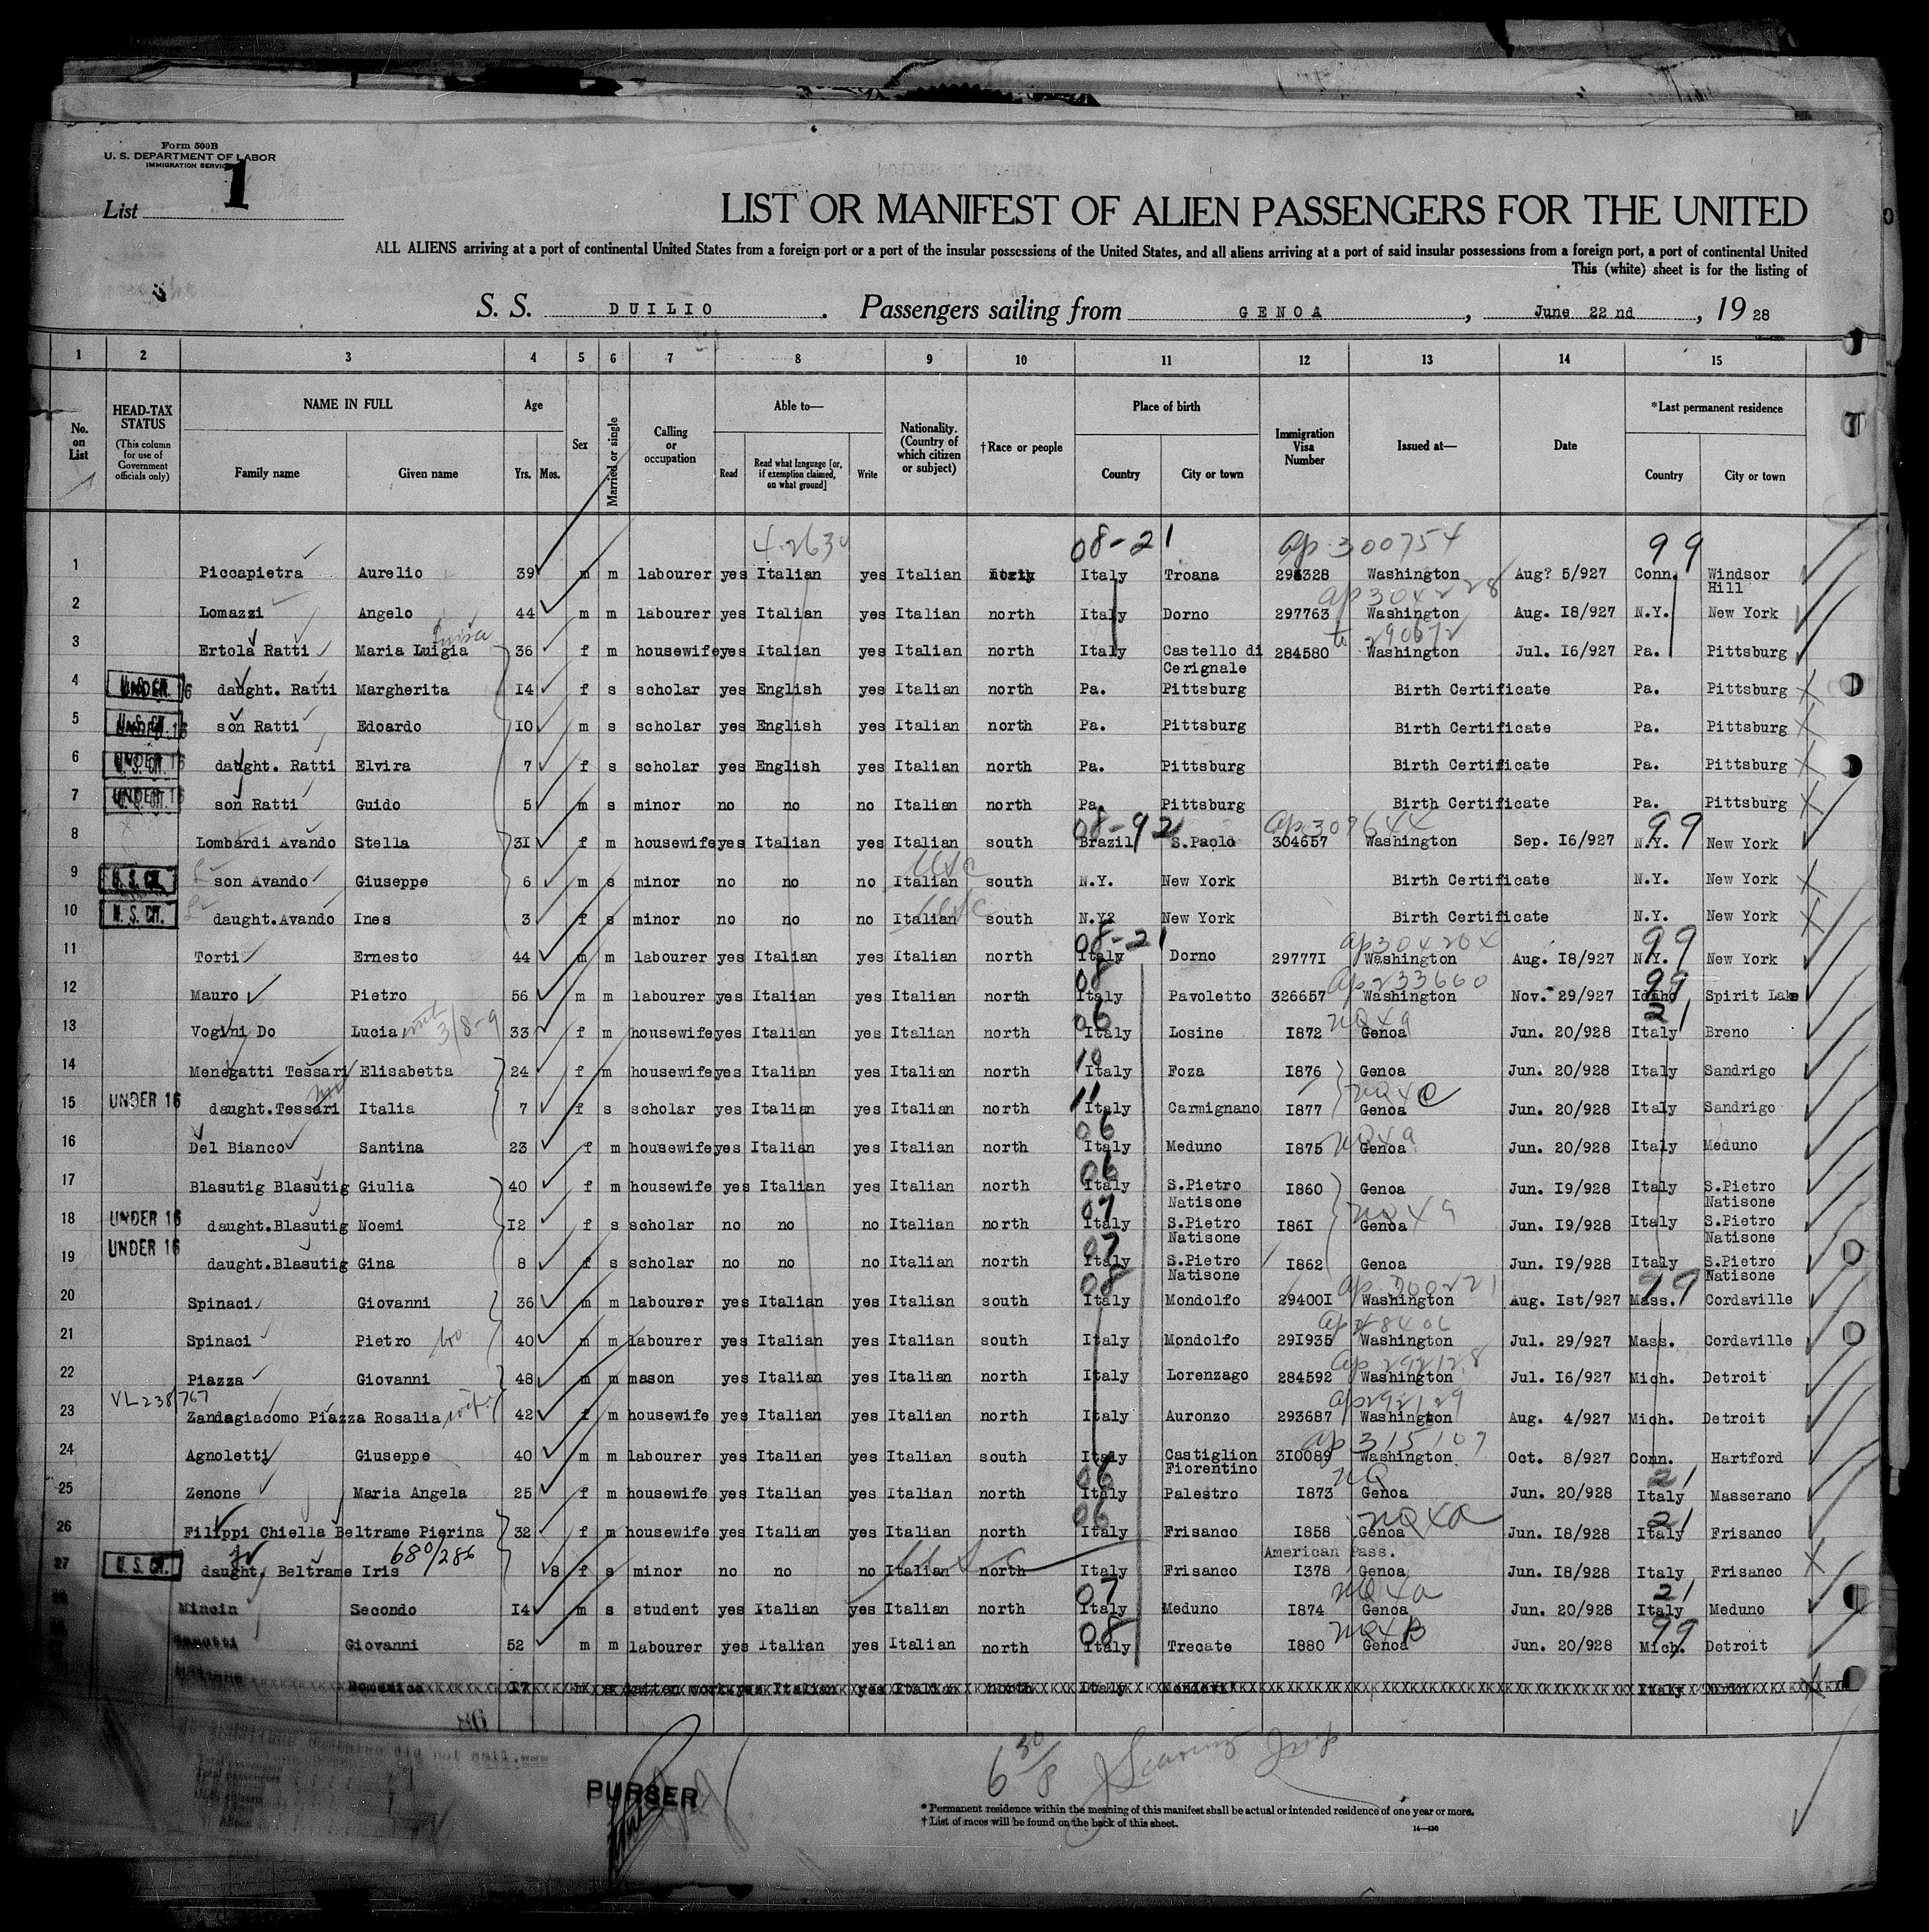 Form 500B
U. S. DEPARTMENT OF LABOR
IMMIGRATION SERVICE
List 1
LIST OR MANIFEST OF ALIEN PASSENGERS FOR THE UNITED
ALL ALIENS arriving at a port of continental United States from a foreign port or a port of the insular possessions of the United States, and all aliens arriving at a port of said insular possessions from a foreign port, a port of continental United
This (white) sheet is for the listing of
S. S. DUILIO. Passengers sailing from GENOA, June 22 nd, 1928
1 2 3 4 5 6 7 8 9 10 11 12 13 14 15
No. on List
HEAD-TAX STATUS (This column for use of Government officials only)
NAME IN FULL Family name Given name
Age Yrs. Mos.
Sex
Married or single
Calling or occupation
Able to— Read Read what language [or, if exemption claimed, on what ground] Write
Nationality. (Country of which citizen or subject)
†Race or people
Place of birth Country City or town
Immigration Visa Number
Issued at—
Date
*Last permanent residence Country City or town
08-21 ap 300754 99
1 Piccapietra Aurelio 39 m m labourer yes Italian yes Italian Italy Troana Washington Aug? 5/927 Conn. Windsor Hill
2 Lomazzi Angelo 44 m m labourer yes Italian yes Italian north Italy Dorno 297763 Washington Aug. I8/927 N.Y. New York
3 Ertola Ratti Maria Luigia 36 f m housewife yes Italian yes Italian north Italy Castello di Cerignale 284580 Washington Jul. I6/927 Pa. Pittsburg
4 UNDER 16 daught. Ratti Margherita I4 f s scholar yes English yes Italian north Pa. Pittsburg Birth Certificate Pa. Pittsburg
5 son Ratti Edoardo I0 m s scholar yes English yes Italian north Pa. Pittsburg Birth Certificate Pa. Pittsburg
6 UNDER 16 daught. Ratti Elvira 7 f s scholar yes English yes Italian north Pa. Pittsburg Birth Certificate Pa. Pittsburg
7 UNDER 16 son Ratti Guido 5 m s minor no no no Italian north Pa. Pittsburg Birth Certificate Pa. Pittsburg
08-92 ap 309644 99
8 Lombardi Avando Stella 3I f m housewife yes Italian yes Italian south Brazil S.Paolo 304657 Washington Sep. I6/927 N.Y. New York
9 U.S. CIT. son Avando Giuseppe 6 m s minor no no no Italian USC south N.Y. New York Birth Certificate N.Y. New York
10 U.S. CIT. daught.Avando Ines 3 f s minor no no no Italian USC south N.Y? New York Birth Certificate N.Y. New York
08-21 ap 304204 99
11 Torti Ernesto 44 m m labourer yes Italian yes Italian north Italy Dorno 29777I Washington Aug. I8/927 N.Y. New York
08 ap 233660 99
12 Mauro Pietro 56 m m labourer yes Italian yes Italian north Italy Pavoletto 326657 Washington Nov. 29/927 Idaho Spirit Lake
06 NQ4a 21
13 Vogini Do Lucia 33 f m housewife yes Italian yes Italian north Italy Losine I872 Genoa Jun. 20/928 Italy Breno
10
14 Menegatti Tessari Elisabetta 24 f m housewife yes Italian yes Italian north Italy Foza I876 Genoa Jun. 20/928 Italy Sandrigo
11 NQ4C
15 UNDER 16 daught.Tessari Italia 7 f s scholar yes Italian yes Italian north Italy Carmignano I877 Genoa Jun. 20/928 Italy Sandrigo
06 NQ4a
16 Del Bianco Santina 23 f m housewife yes Italian yes Italian north Italy Meduno I875 Genoa Jun. 20/928 Italy Meduno
06
17 Blasutig Blasutig Giulia 40 f m housewife yes Italian yes Italian north Italy S.Pietro Natisone I860 Genoa Jun. I9/928 Italy S.Pietro Natisone
07 NQ4a
18 UNDER 16 daught.Blasutig Noemi I2 f s scholar no no no Italian north Italy S.Pietro Natisone I86I Genoa Jun. I9/928 Italy S.Pietro Natisone
07
19 UNDER 16 daught.Blasutig Gina 8 f s scholar no no no Italian north Italy S.Pietro Natisone I862 Genoa Jun. I9/928 Italy S.Pietro Natisone
08 99
20 Spinaci Giovanni 36 m m labourer yes Italian yes Italian south Italy Mondolfo 29400I Washington Aug. Ist/927 Mass. Cordaville
21 Spinaci Pietro bo 40 m m labourer yes Italian yes Italian south Italy Mondolfo 29I935 Washington Jul. 29/927 Mass. Cordaville
ap 292128
22 Piazza Giovanni 48 m m mason yes Italian yes Italian north Italy Lorenzago 284592 Washington Jul. I6/927 Mich. Detroit
VL 238/767 ap 292129
23 Zandegiacomo Piazza Rosalia wife 42 f m housewife yes Italian yes Italian north Italy Auronzo 293687 Washington Aug. 4/927 Mich. Detroit
ap 315107
24 Agnoletti Giuseppe 40 m m labourer yes Italian yes Italian south Italy Castiglion Fiorentino 3I0089 Washington Oct. 8/927 Conn. Hartford
06 NQ 21
25 Zenone Maria Angela 25 f m housewife yes Italian yes Italian north Italy Palestro I873 Genoa Jun. 20/928 Italy Masserano
06 NQ4a 21
26 Filippi Chiella Beltrame Pierina 32 f m housewife yes Italian yes Italian north Italy Frisanco I858 Genoa Jun. I8/928 Italy Frisanco
680/286 American Pass.
27 U.S. CIT. daught. Beltrame Iris 8 f s minor no no no Italian USC north Italy Frisanco I378 Genoa Jun. I8/928 Italy Frisanco
07 NQ4a 21
Mincin Secondo I4 m s student yes Italian yes Italian north Italy Meduno I874 Genoa Jun. 20/928 Italy Meduno
08 NQ4B 99
Giovanni 52 m m labourer yes Italian yes Italian north Italy Trecate I880 Genoa Jun. 20/928 Mich. Detroit
Domenico I7 m s yes Italian yes Italian north Italy Mondovi Italy
did not sail.
PURSER
6 30/8
* Permanent residence within the meaning of this manifest shall be actual or intended residence of one year or more.
† List of races will be found on the back of this sheet.
14—430